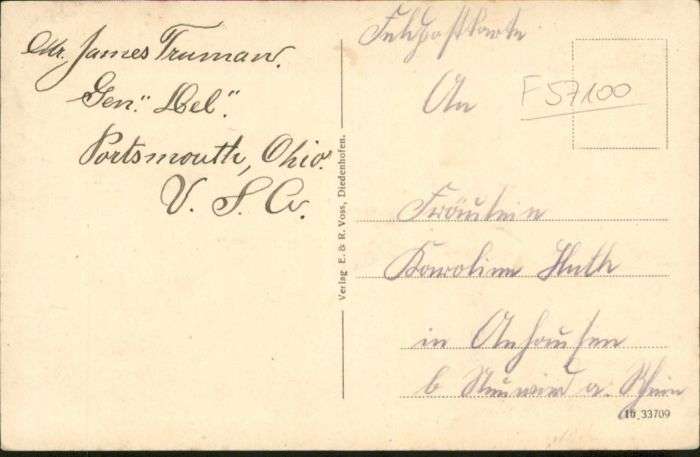 Mr. James Truman.
Gen." Del".
Portsmouth, Ohio.
U. S. A.
Verlag E. & R. Voss, Diedenhofen.
Feldpostkarte
An
F 57100
Fräulein
Karoline Huth
in Anhausen
b Neuwied a. Rhein
10_33709